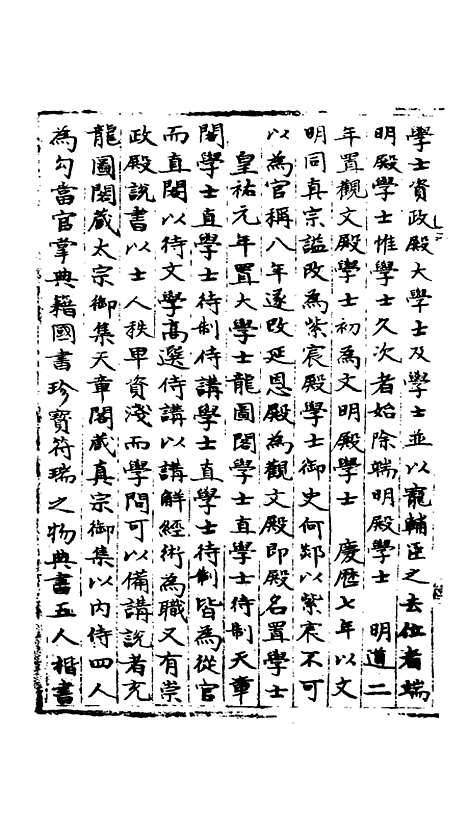 學士資政殿大學士及學士並以寵輔臣之去位者端
明殿學士惟學士久次者始除端明殿學士　明道二
年置觀文殿學士初為文明殿學士　慶曆七年以文
明同真宗謚改為紫宸殿學士御史何郯以紫宸不可
以為官稱八年遂改延恩殿為觀文殿即殿名置學士
皇祐元年置大學士龍圖閣學士直學士待制天章
閣學士直學士待制侍講學士直學士待制皆為從官
而直閣以待文學高選侍講以講解經術為職又有崇
政殿說書以士人秩卑資淺而學問可以備講說者充
龍圖閣蔵太宗御集天章閣蔵真宗御集以內侍四人
為勾當官掌典籍國書珍寶符瑞之物典書五人楷書